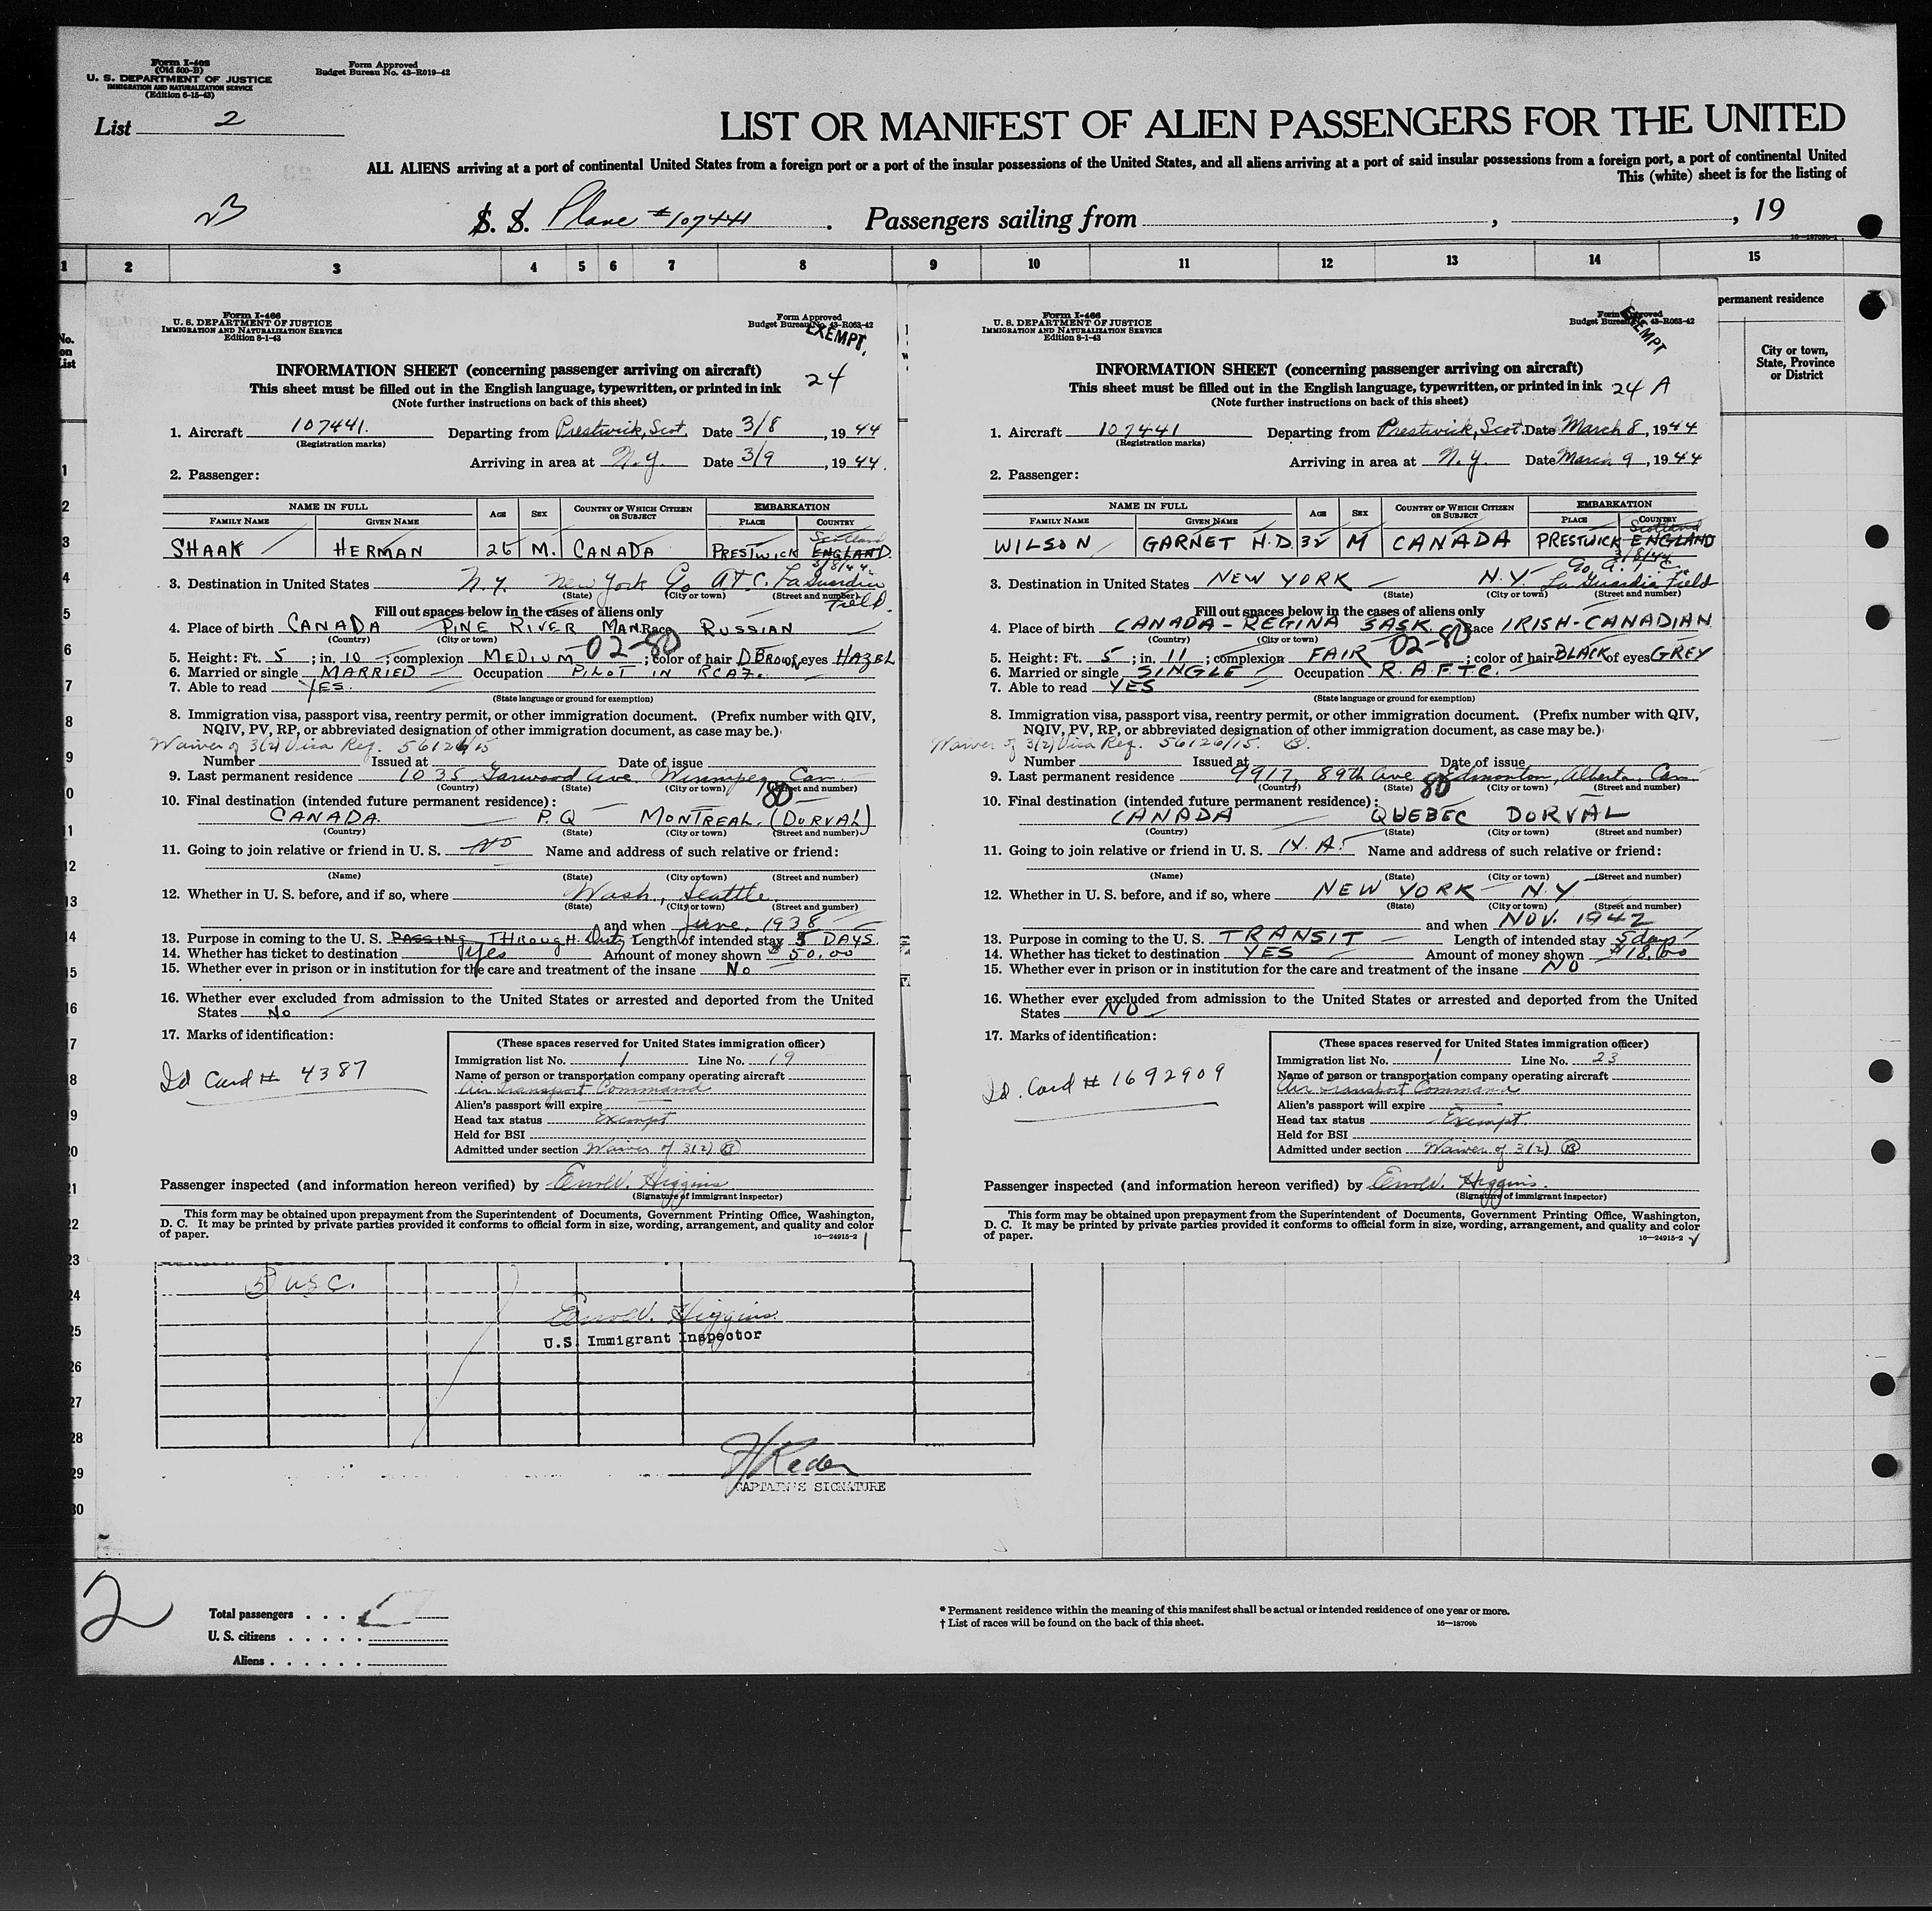 Form I-402
(Old 500-B)
U. S. DEPARTMENT OF JUSTICE
IMMIGRATION AND NATURALIZATION SERVICE
(Edition 6-15-43)
Form Approved
Budget Bureau No. 43-R019-42
List 2
LIST OR MANIFEST OF ALIEN PASSENGERS FOR THE UNITED
ALL ALIENS arriving at a port of continental United States from a foreign port or a port of the insular possessions of the United States, and all aliens arriving at a port of said insular possessions from a foreign port, a port of continental United
This (white) sheet is for the listing of
S. S. Plane #107441 . Passengers sailing from , , 19
1 2 3 4 5 6 7 8 9 10 11 12 13 14 15
No.
on
List
permanent residence
City or town,
State, Province
or District
Form I-466
U. S. DEPARTMENT OF JUSTICE
IMMIGRATION AND NATURALIZATION SERVICE
Edition 8-1-43
Form Approved
Budget Bureau No. 43-R063-42
EXEMPT
INFORMATION SHEET (concerning passenger arriving on aircraft)
24
This sheet must be filled out in the English language, typewritten, or printed in ink
(Note further instructions on back of this sheet)
1. Aircraft 107441. Departing from Prestwick, Scot. Date 3/8, 1944
(Registration marks)
Arriving in area at N.Y. Date 3/9, 1944.
2. Passenger:
NAME IN FULL AGE SEX COUNTRY OF WHICH CITIZEN OR SUBJECT EMBARKATION
FAMILY NAME GIVEN NAME PLACE COUNTRY
Scotland
SHAAK HERMAN 25 M. CANADA PRESTWICK ENGLAND
3/8/44
3. Destination in United States N.Y. New York Co A.T.C. La Guardia
Field
(State) (City or town) (Street and number)
Fill out spaces below in the cases of aliens only
4. Place of birth CANADA PINE RIVER MAN. Race RUSSIAN
(Country) (City or town)
02-80
5. Height: Ft. 5; in. 10; complexion MEDIUM; color of hair D BROWN of eyes HAZEL
6. Married or single MARRIED Occupation PILOT IN RCAF.
7. Able to read YES.
(State language or ground for exemption)
8. Immigration visa, passport visa, reentry permit, or other immigration document. (Prefix number with QIV,
NQIV, PV, RP, or abbreviated designation of other immigration document, as case may be.)
Waiver of 3(2) Visa Reg. 58126/15
Number Issued at Date of issue
9. Last permanent residence 1035 Garwood Ave. Winnipeg, Can.
(Country) (State) (City or town) (Street and number)
80
10. Final destination (intended future permanent residence):
CANADA. P.Q MONTREAL. (DORVAL)
(Country) (State) (City or town) (Street and number)
11. Going to join relative or friend in U. S. NO Name and address of such relative or friend:
(Name) (State) (City or town) (Street and number)
12. Whether in U. S. before, and if so, where Wash., Seattle.
(State) (City or town) (Street and number)
and when June, 1938
13. Purpose in coming to the U. S. PASSING THROUGH. Duty Length of intended stay 5 DAYS.
14. Whether has ticket to destination Yes Amount of money shown $50.00
15. Whether ever in prison or in institution for the care and treatment of the insane No
16. Whether ever excluded from admission to the United States or arrested and deported from the United
States No
17. Marks of identification:
Id Card # 4387
(These spaces reserved for United States immigration officer)
Immigration list No. 1 Line No. 19
Name of person or transportation company operating aircraft
Air Transport Command
Alien's passport will expire
Head tax status Exempt
Held for BSI
Admitted under section Waiver of 3(2) B
Passenger inspected (and information hereon verified) by Errol V. Higgins.
(Signature of immigrant inspector)
This form may be obtained upon prepayment from the Superintendent of Documents, Government Printing Office, Washington,
D. C. It may be printed by private parties provided it conforms to official form in size, wording, arrangement, and quality and color
of paper.
16—24915-2 1
Form I-466
U. S. DEPARTMENT OF JUSTICE
IMMIGRATION AND NATURALIZATION SERVICE
Edition 8-1-43
Form Approved
Budget Bureau No. 43-R063-42
EXEMPT
INFORMATION SHEET (concerning passenger arriving on aircraft)
24 A
This sheet must be filled out in the English language, typewritten, or printed in ink
(Note further instructions on back of this sheet)
1. Aircraft 107441 Departing from Prestwick, Scot. Date March 8, 1944
(Registration marks)
Arriving in area at N.Y. Date March 9, 1944
2. Passenger:
NAME IN FULL AGE SEX COUNTRY OF WHICH CITIZEN OR SUBJECT EMBARKATION
FAMILY NAME GIVEN NAME PLACE COUNTRY
Scotland
WILSON GARNET H.D. 32 M CANADA PRESTWICK ENGLAND
3/8/44
Co, A.T.C.
3. Destination in United States NEW YORK N.Y. La Guardia Field
(State) (City or town) (Street and number)
Fill out spaces below in the cases of aliens only
4. Place of birth CANADA - REGINA SASK. Race IRISH-CANADIAN
(Country) (City or town)
02-80
5. Height: Ft. 5; in. 11; complexion FAIR; color of hair BLACK of eyes GREY
6. Married or single SINGLE Occupation R.A.F.T.C.
7. Able to read YES
(State language or ground for exemption)
8. Immigration visa, passport visa, reentry permit, or other immigration document. (Prefix number with QIV,
NQIV, PV, RP, or abbreviated designation of other immigration document, as case may be.)
Waiver of 3(2) Visa Reg. 58126/15. B.
Number Issued at Date of issue
9. Last permanent residence 9917, 89th Ave Edmonton, Alberta, Can.
(Country) (State) (City or town) (Street and number)
80
10. Final destination (intended future permanent residence):
CANADA QUEBEC DORVAL
(Country) (State) (City or town) (Street and number)
11. Going to join relative or friend in U. S. N.A. Name and address of such relative or friend:
(Name) (State) (City or town) (Street and number)
12. Whether in U. S. before, and if so, where NEW YORK N.Y
(State) (City or town) (Street and number)
and when NOV. 1942
13. Purpose in coming to the U. S. TRANSIT Length of intended stay 5 days
14. Whether has ticket to destination YES Amount of money shown $18.00
15. Whether ever in prison or in institution for the care and treatment of the insane NO
16. Whether ever excluded from admission to the United States or arrested and deported from the United
States NO
17. Marks of identification:
Id. Card # 1692909
(These spaces reserved for United States immigration officer)
Immigration list No. 1 Line No. 23
Name of person or transportation company operating aircraft
Air Transport Command
Alien's passport will expire
Head tax status Exempt.
Held for BSI
Admitted under section Waiver of 3(2) B
Passenger inspected (and information hereon verified) by Errol V. Higgins.
(Signature of immigrant inspector)
This form may be obtained upon prepayment from the Superintendent of Documents, Government Printing Office, Washington,
D. C. It may be printed by private parties provided it conforms to official form in size, wording, arrangement, and quality and color
of paper.
16—24915-2
5 USC.
Errol V. Higgins
U.S. Immigrant Inspector
CAPTAIN'S SIGNATURE
2
Total passengers
U. S. citizens
Aliens
* Permanent residence within the meaning of this manifest shall be actual or intended residence of one year or more.
† List of races will be found on the back of this sheet.
16—18709b